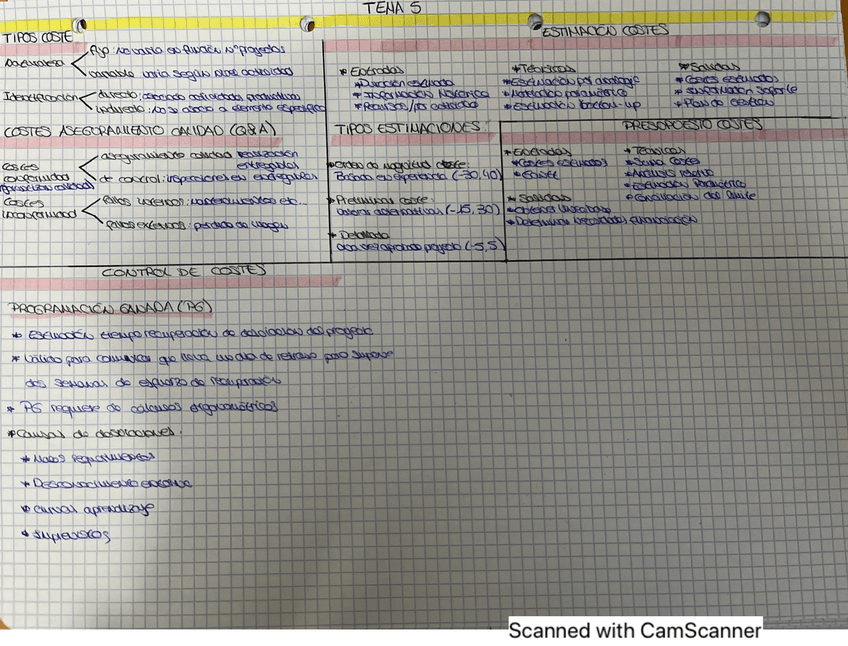 TEMA 5
TIPOS COSTE
Naturaleza
Fijo: No varía en función Nº proyectos
variable varía según nivel actividad
Identificación
directo: asociado actividades productivas
indirecto: no se asocia a elemento específico
COSTES ASEGURAMIENTO CALIDAD (Q&A)
Costes conformidad
aseguramiento calidad realización entregables
de control: inspecciones en entregables
Costes inconformidad
Fallos internos: mantenimientos etc...
Fallos externos: pérdida de imagen
ESTIMACIÓN COSTES
* Entradas
* Duración estimada
* Información histórica
* Recursos/ actividad
* Técnicas
* Estimación por analogía
* Modelado paramétrico
* Estimación bottom-up
* Salidas
* Costes estimados
* Información soporte
* Plan de gestión
TIPOS ESTIMACIONES
* Orden de magnitud coste:
Basada en experiencia (-30,40)
* Preliminar coste:
(-15, 30)
* Detallado
aprobado proyecto (-5,5)
PRESUPUESTO COSTES
* Entradas
* Costes estimados
* Técnicas
* Suma costes
* Análisis reserva
* Estimación Paramétrica
* Conciliación del límite
* Salidas
* Obtener línea base
* Determinar necesidades financiación
CONTROL DE COSTES
PROGRAMACIÓN GANADA (PG)
* Estimación tiempo recuperación de desviación del proyecto
* Válido para comunicar que lleva un día de retraso pero supone
dos semanas de esfuerzo de recuperación
* PG requiere de cálculos
* Causas de desviaciones:
* Malos requerimientos
* Desconocimiento
* Curvas aprendizaje
* Imprevistos
Scanned with CamScanner